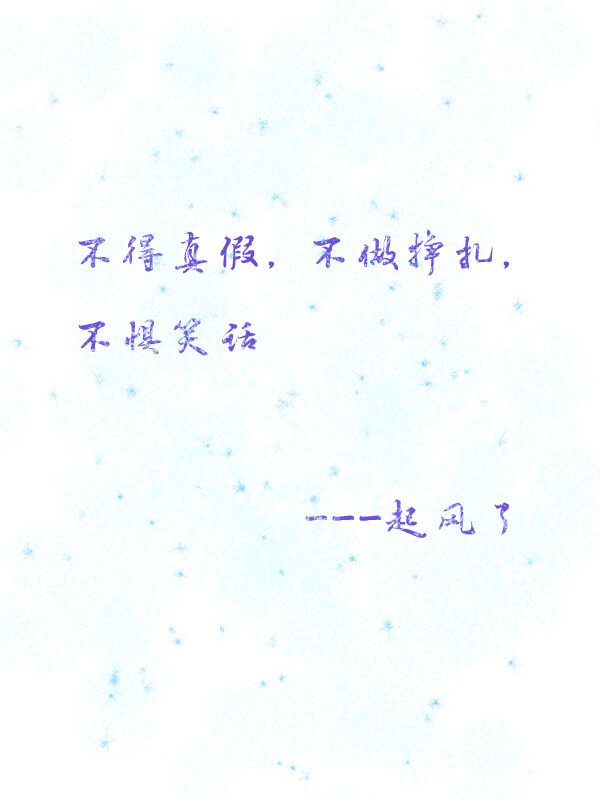 不得真假，不做挣扎，
不惧笑话
---起风了